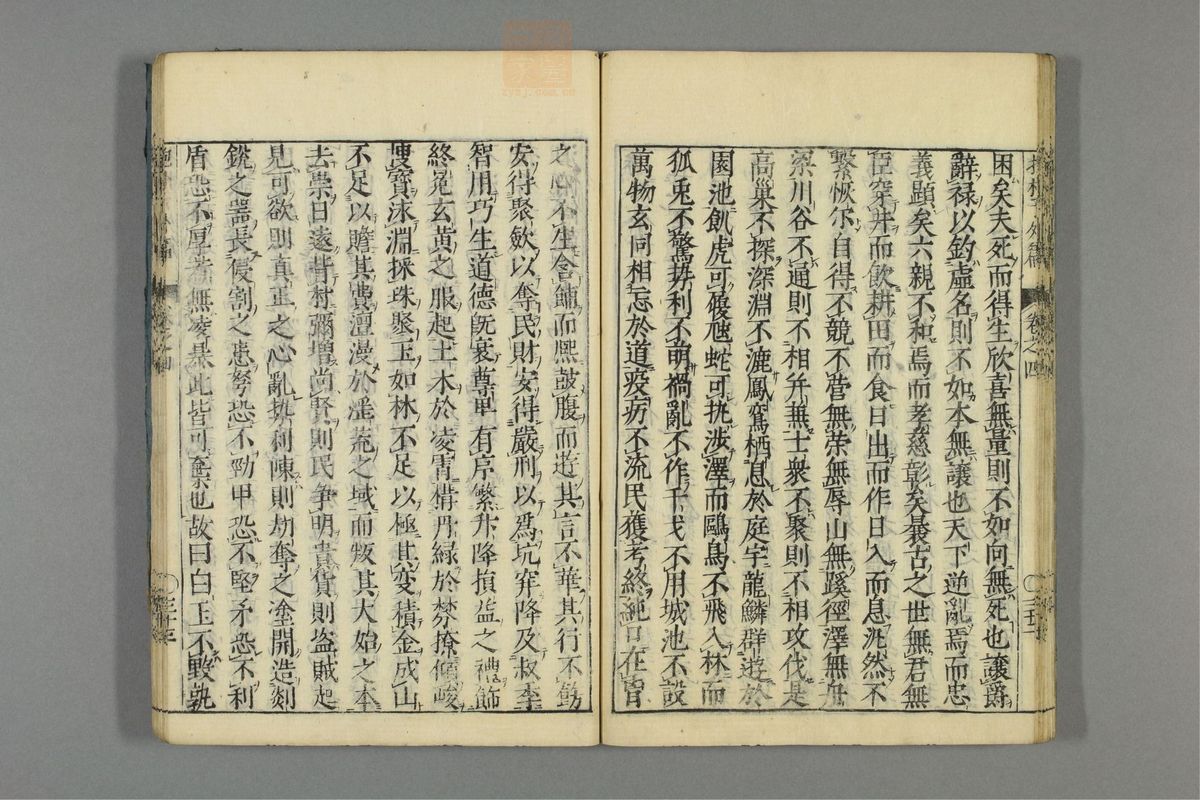 困矣夫死而得生欣喜無量則不如向無死也讓爵
辭禄以釣虛名則不如本無讓也天下逆亂焉而忠
義顯矣六親不和焉而孝慈彰矣曩古之世無君無
臣穿井而飲耕田而食日出而作日入而息汎然不
繫恢尓自得不競不營無栄無辱山無蹊徑澤無舟
梁川谷不通則不相并兼士衆不聚則不相攻伐是
高巢不探深淵不漉鳳鸞栖息於庭宇龍鱗群遊於
園池飢虎可履虺蛇可执涉澤而鷗鳥不飛入林而
狐兎不驚势利不萌禍亂不作干戈不用城池不設
萬物玄同相忘於道疫疠不流民獲考終純口在胷
之心不生含餔而熙鼓腹而遊其言不華其行不飾
安得聚歛以奪民財安得嚴刑以爲坑穽降及叔季
智用巧生道德既衰尊卑有序繁升降損益之禮飾
紱冕玄黃之服起土木於凌霄構丹緑於棼橑傾峻
搜寶泳淵採珠聚玉如林不足以極其变積金成山
不足以贍其費澶漫於滛荒之域而叛其大始之本
去崇日遠背朴彌增尚賢則民争明貴貨則盜賊起
見可欲則真正之心亂势利陳則劫奪之塗開造剡
銳之噐長侵割之患弩恐不勁甲恐不堅矛恐不利
盾恐不厚若無凌暴此皆可棄也故曰白玉不毀孰
卷之四
三十二
三十三
zysj.com.cn